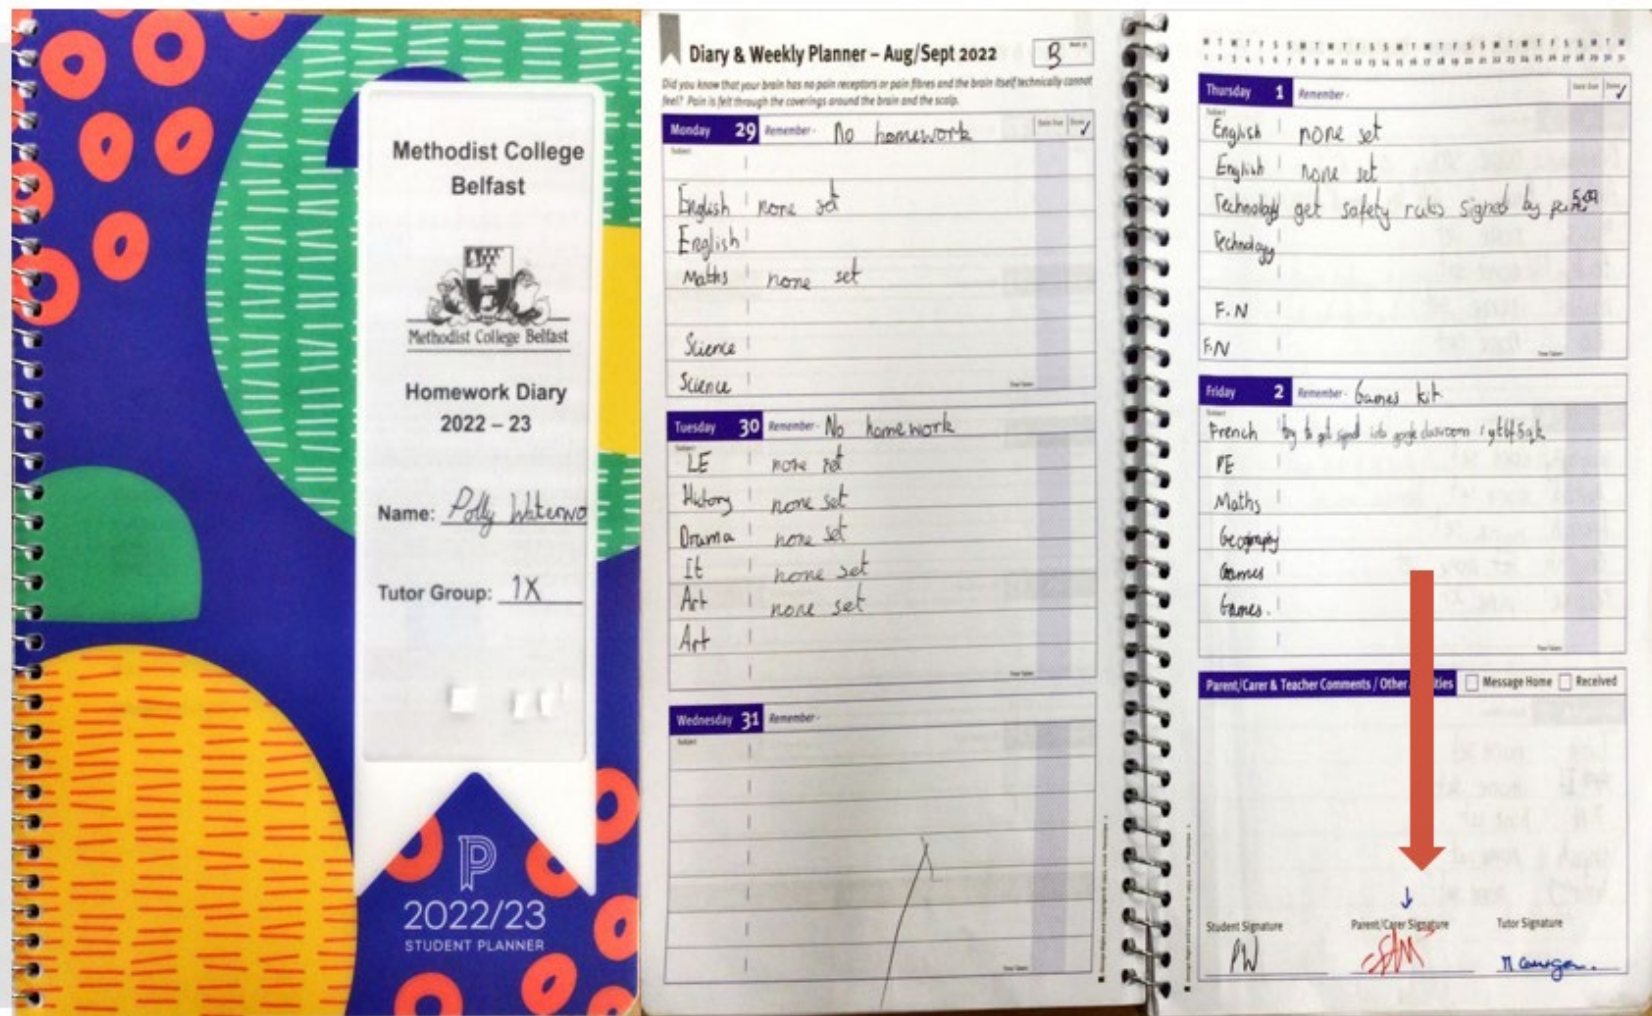 Methodist College
Belfast
Methodist College Belfast
Homework Diary
2022 – 23
Name: Polly Waterwo
Tutor Group: 1X
2022/23
STUDENT PLANNER
Diary & Weekly Planner – Aug/Sept 2022 B
Did you know that your brain has no pain receptors or pain fibres and the brain itself technically cannot
feel? Pain is felt through the coverings around the brain and the scalp.
Monday 29 Remember - No homework Date Due Done ✓
Subject
English none set
English
Maths none set
Science
Science
Tuesday 30 Remember - No homework
Subject
LE none set
History none set
Drama none set
It none set
Art none set
Art
Wednesday 31 Remember -
Subject
M T W T F S S M T W T F S S M T W T F S S M T W T F S S M T W
1 2 3 4 5 6 7 8 9 10 11 12 13 14 15 16 17 18 19 20 21 22 23 24 25 26 27 28 29 30 31
Thursday 1 Remember - Date Due Done ✓
Subject
English none set
English none set
Technology get safety rules signed by
Technology
F.N
F.N
Friday 2 Remember - Games kit
Subject
French try to get signed into google classroom
PE
Maths
Geography
Games
Games.
Parent/Carer & Teacher Comments / Other Message Home Received
Student Signature Parent/Carer Signature Tutor Signature
PW